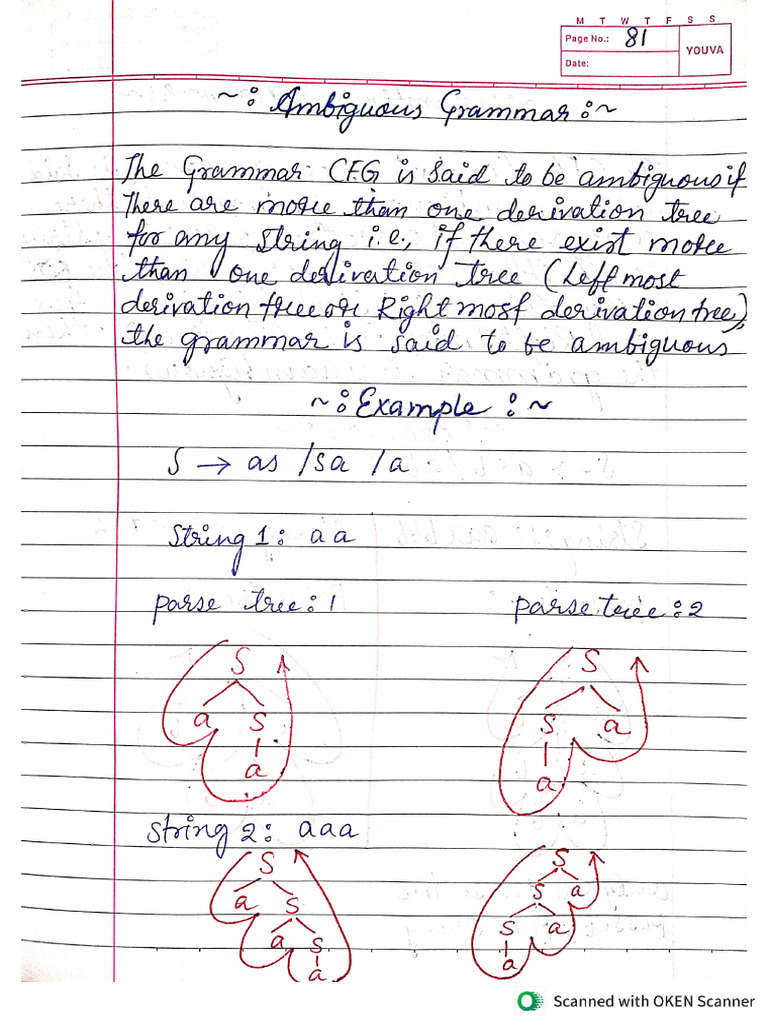 M T W T F S S
Page No.: 81
YOUVA
Date:
~: Ambiguous Grammar :~
The Grammar CFG is said to be ambiguous if
there are more than one derivation tree
for any string i.e., if there exist more
than one derivertion tree (Left most
derivation tree or Right most derivation tree),
the grammar is said to be ambiguous
~: Example :~
S → as /sa /a
String 1: aa
parse tree: 1 parse tree: 2
S S
a S S a
a a
String 2: aaa
S S
a S S a
a S S a
a a
Scanned with OKEN Scanner